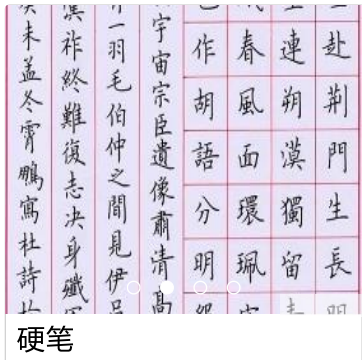 赴荆門生長明
連朔漠獨留青
春風面環珮
作胡語分明怨
宇宙宗臣遺像肅清高
一羽毛伯仲之間見伊呂
祚終難復志决身殲
未孟冬霄鵬寫杜詩於
硬笔